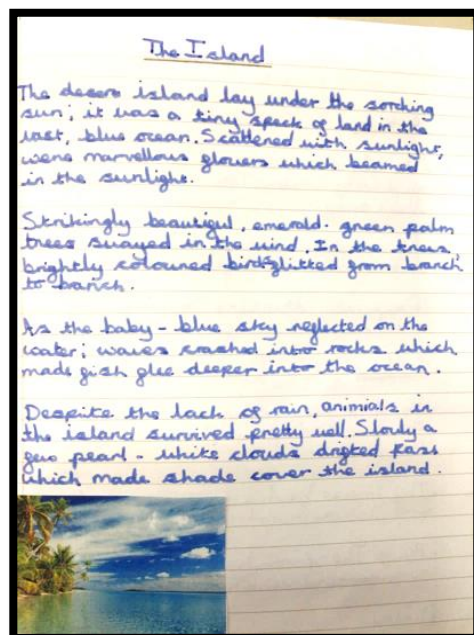 The Island
The desero island lay under the sorching
sun; it was a tiny speck of land in the
vast, blue ocean. Scattered with sunlight,
were marvellous flowers which beamed
in the sunlight.
Strikingly beautiful, emerald-green palm
trees swayed in the wind. In the trees,
brightly coloured birds flitted from branch
to branch.
As the baby-blue sky reflected on the
water; waves crashed into rocks which
made fish flee deeper into the ocean.
Despite the lack of rain, animials in
the island survived pretty well. Slowly a
few pearl-white clouds drifted
which made shade cover the island.